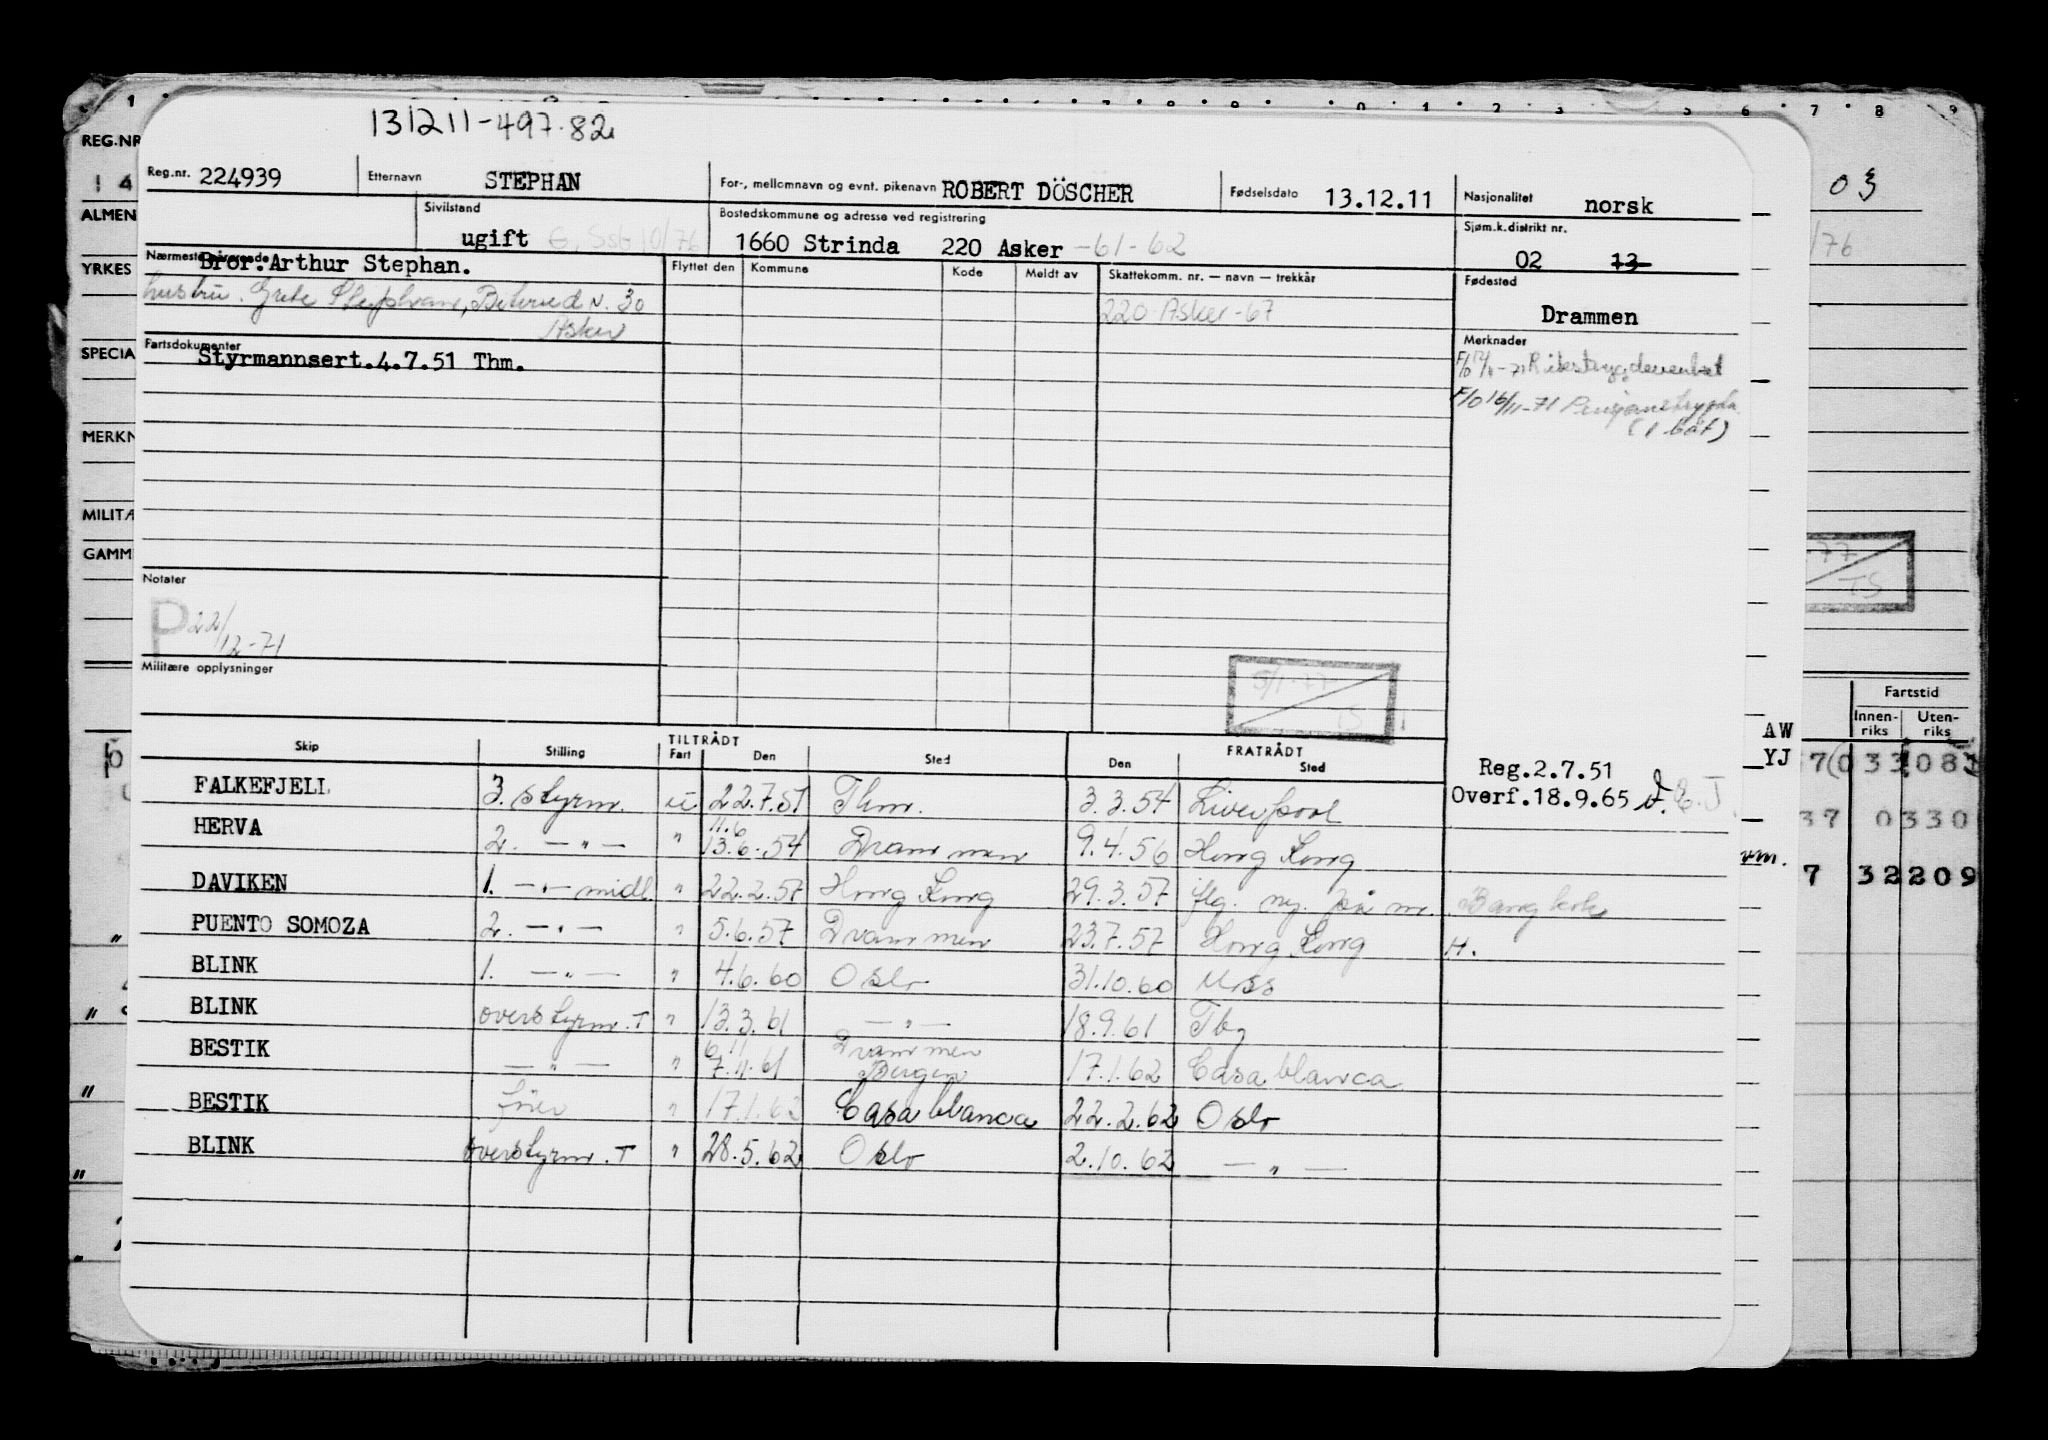 1 . . 7 . 8 . 9 . 0 . 1 . 2 . 3 . 5 6 . 7 . 8 9
131211-497.82
REG.NR
Reg.nr. 224939 Etternavn STEPHAN For-, mellomnavn og evnt. pikenavn ROBERT DÖSCHER Fødselsdato 13.12.11 Nasjonalitet norsk
14 03
ALMEN Sivilstand ugift Bostedskommune og adresse ved registrering 1660 Strinda 220 Asker -61-62 Sjøm.k.distrikt nr. 02 13
/76
YRKES Nærmeste pårørende Bror:Arthur Stephan. Flyttet den Kommune Kode Meldt av Skattekomm. nr. — navn — trekkår Fødested Drammen
hustru. Grete Stephan, N. 30
Asker
220 Asker-67
SPECIA Fartsdokumenter
Styrmannsert.4.7.51 Thm.
Merknader
Rikstrygdeverket
F/O 16/11-71 Pensjonstrygda
(1 bat)
MERKN
MILITÆ
GAMM
Notater
P 22/12-71
Militære opplysninger
5/1-77
TS
-77
TS
Fartstid
Innenriks Utenriks
Skip Stilling TILTRÅDT Fart Den Sted FRATRÅDT Den Sted
AW
YJ
Reg.2.7.51
Overf.18.9.65
FALKEFJELL 3. styrm. u 22.7.51 Thm. 3.3.54 Liverpool
HERVA 2. — " — " 11.6 13.6.54 Drammen 9.4.56 Hong Kong
DAVIKEN 1. — " — midl. " 22.2.57 Hong Kong 29.3.57 flg. ny. på m. Bangkok
PUENTO SOMOZA 2. — " — " 5.6.57 Drammen 23.7.57 Hong Kong H.
BLINK 1. — " — " 4.6.60 Oslo 31.10.60 Moss
BLINK overstyrm. T " 13.3.61 — " — 18.9.61 Tbg
BESTIK — " — " 6.11 7.11.61 Drammen Bergen 17.1.62 Casablanca
BESTIK fører " 17.1.62 Casablanca 22.2.62 Oslo
BLINK overstyrm. T " 28.5.62 Oslo 2.10.62 — " —
37 0330
7 32209